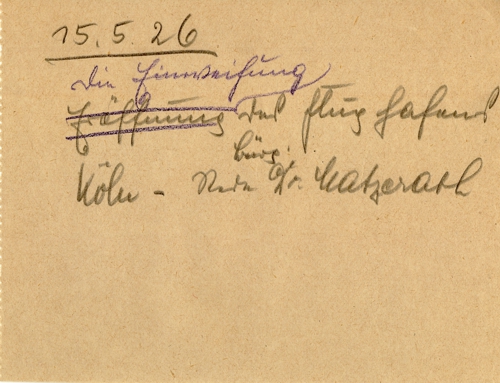 15.5.26
Die Einweihung
Eröffnung des Flughafens
Bürg.
Köln - Rede Dr. Matzerath